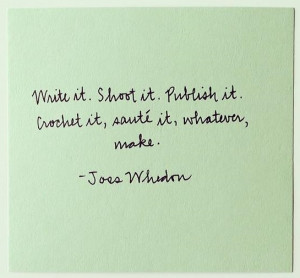 Write it. Shoot it. Publish it.
Crochet it, sauté it, whatever,
make.
-Joss Whedon